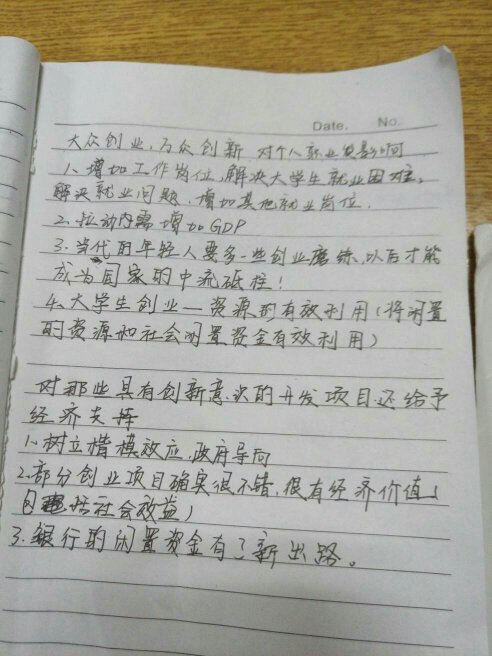 Date. No.
大众创业,万众创新 对个人就业的影响
1、增加工作岗位,解决大学生就业困难,
解决就业问题,增加其他就业岗位.
2、拉动内需 增加GDP
3、当代的年轻人要多一些创业磨练,以后才能
成为国家的中流砥柱!
4、大学生创业—资源的有效利用(将闲置
的资源和社会闲置资金有效利用)
对那些具有创新意识的开发项目还给予
经济支持
1、树立楷模效应,政府导向
2.部分创业项目确实很不错,很有经济价值(
包括社会效益)
3.银行的闲置资金有了新出路。